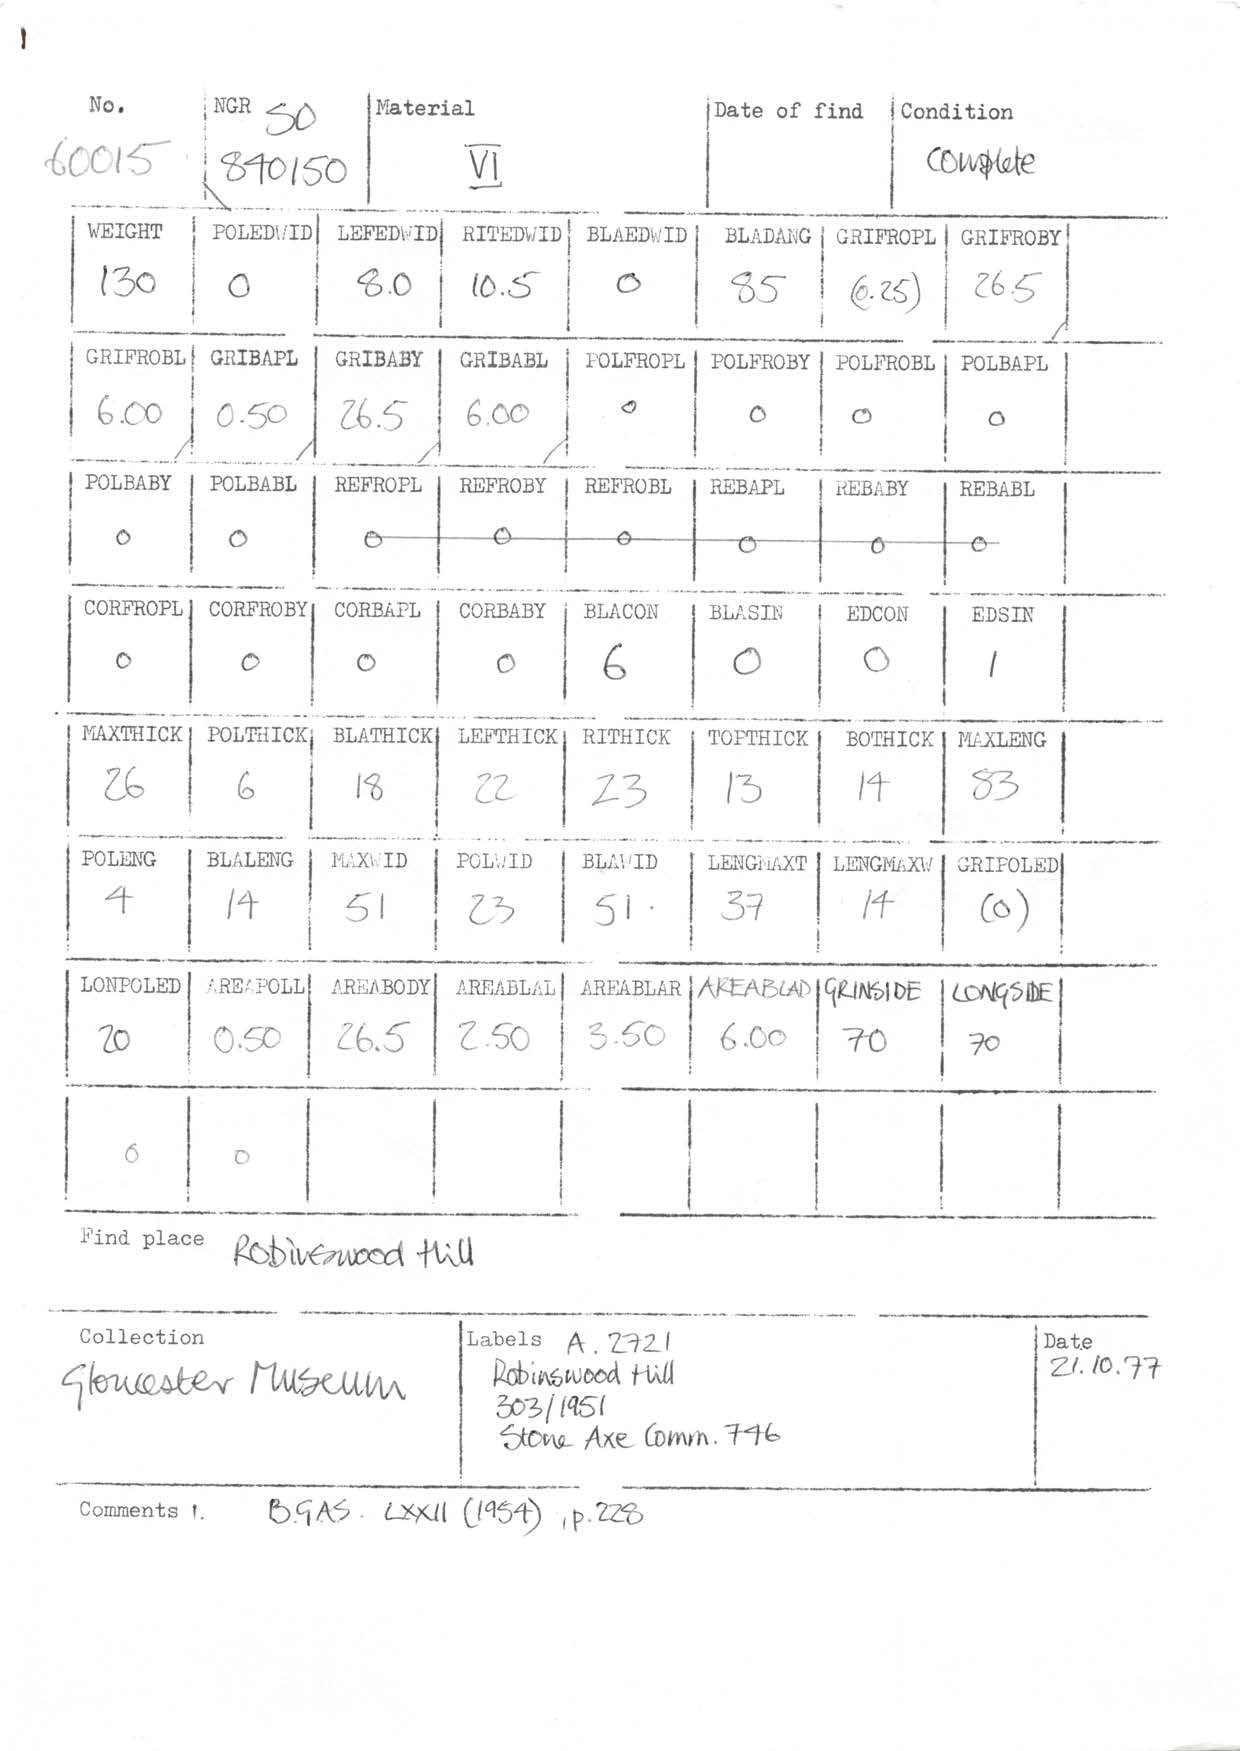 No. NGR SO Material Date of find Condition
60015 840150 VI complete
WEIGHT POLEDWID LEFEDWID RITEDWID BLAEDWID BLADANG GRIFROPL GRIFROBY
130 0 8.0 10.5 0 85 (0.25) 26.5
GRIFROBL GRIBAPL GRIBABY GRIBABL POLFROPL POLFROBY POLFROBL POLBAPL
6.00 0.50 26.5 6.00 0 0 0 0
POLBABY POLBABL REFROPL REFROBY REFROBL REBAPL REBABY REBABL
0 0 0 0 0 0 0 0
CORFROPL CORFROBY CORBAPL CORBABY BLACON BLASIN EDCON EDSIN
0 0 0 0 6 0 0 1
MAXTHICK POLTHICK BLATHICK LEFTHICK RITHICK TOPTHICK BOTHICK MAXLENG
26 6 18 22 23 13 14 83
POLENG BLALENG MAXWID POLWID BLAWID LENGMAXT LENGMAXW GRIPOLED
4 14 51 23 51. 37 14 (0)
LONPOLED AREAPOLL AREABODY AREABLAL AREABLAR AREABLAD GRINSIDE LONGSIDE
20 0.50 26.5 2.50 3.50 6.00 70 70
0 0
Find place Robinswood Hill
Collection Labels A.2721 Date
Gloucester Museum Robinswood Hill 21.10.77
303/1951
Stone Axe Comm. 746
Comments 1. B.G.A.S. LXXII (1954), p.228